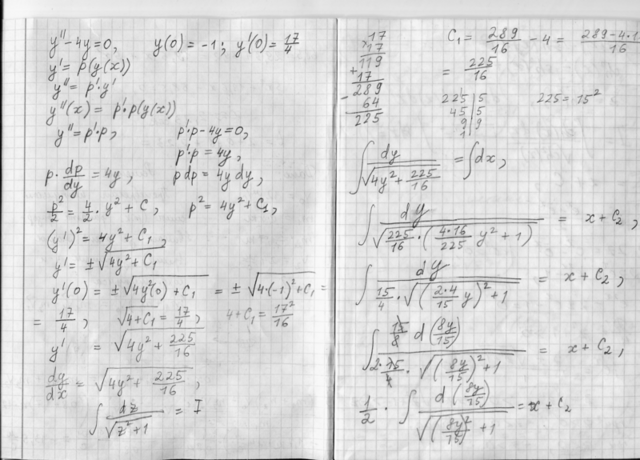 y''-4y=0, y(0)=-1; y'(0)=17/4
y'=p(y(x))
y''=p'·y'
y''(x)=p'·p(y(x))
y''=p'·p, p'·p-4y=0,
p'·p=4y,
p·dp/dy=4y, pdp=4ydy,
p²/2=4/2·y²+C, p²=4y²+C₁,
(y')²=4y²+C₁,
y'=±√(4y²+C₁)
y'(0)=±√(4y²(0)+C₁)=±√(4·(-1)²+C₁)=
=17/4, √(4+C₁)=17/4, 4+C₁=17²/16
y'=√(4y²+225/16)
dy/dx=√(4y²+225/16),
∫dz/√(z²+1)=I
17
17
119
+17
-289
64
225
C₁=289/16-4=(289-4·1/16
=225/16
225|5
45|5
9|9
1
225=15²
∫dy/√(4y²+225/16)=∫dx,
∫dy/√(225/16·(4·16/225 y²+1))=x+C₂,
∫dy/(15/4·√((2·4/15 y)²+1))=x+C₂,
∫15/8 d(8y/15)/(2·15/4·√((8y/15)²+1))=x+C₂,
1/2·∫d(8y/15)/√((8y/15)²+1)=x+C₂